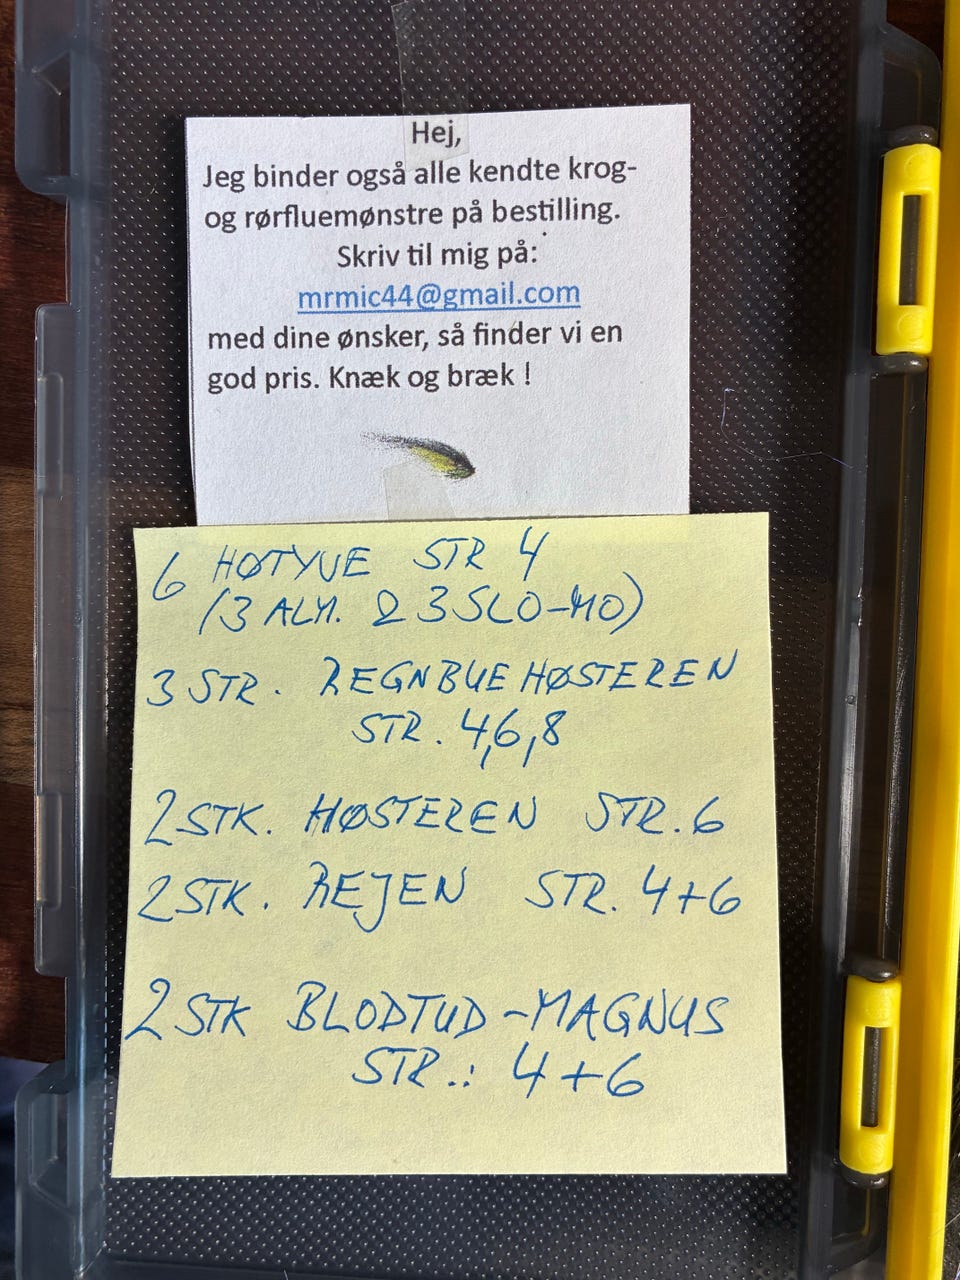 Hej,
Jeg binder også alle kendte krog-
og rørfluemønstre på bestilling.
Skriv til mig på:
mrmic44@gmail.com
med dine ønsker, så finder vi en
god pris. Knæk og bræk !
6 HØTYVE STR 4
(3 ALM. & 3 SLO-MO)
3 STR. REGNBUEHØSTEREN
STR. 4,6,8
2 STK. HØSTEREN STR. 6
2 STK. REJEN STR. 4+6
2 STK BLODTUD-MAGNUS
STR.: 4+6